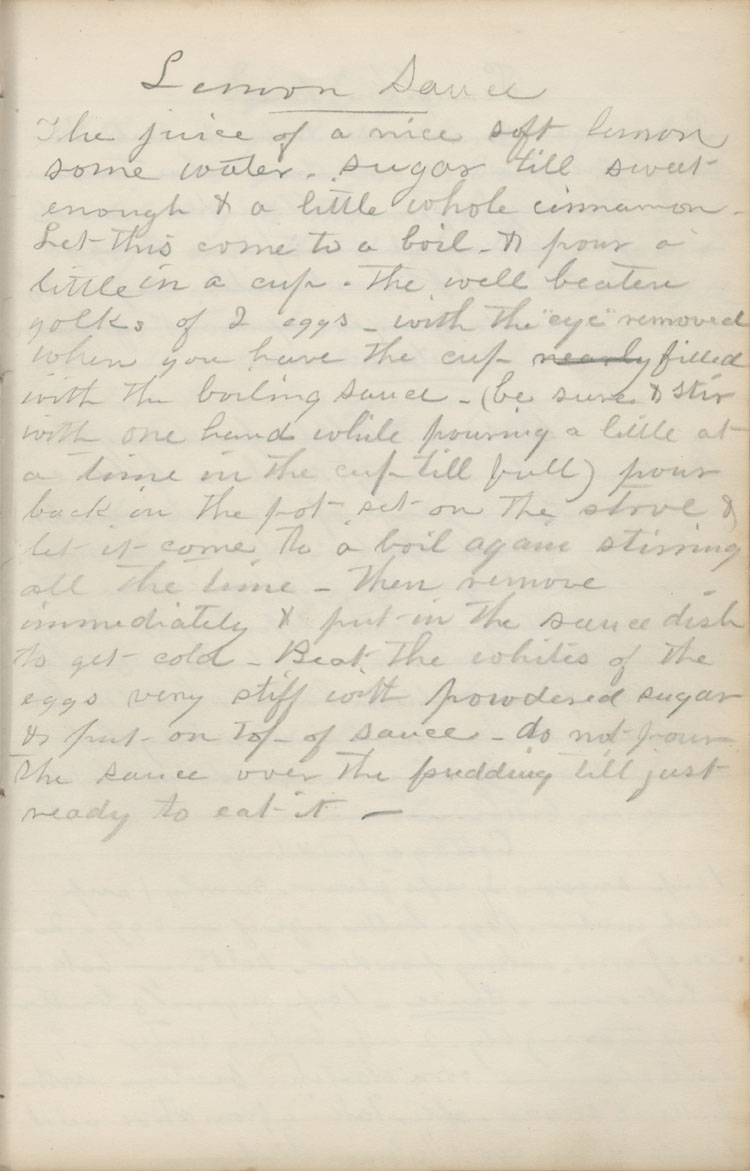 Lemon Sauce
The juice of a nice soft lemon
some water. sugar till sweet
enough & a little whole cinnamon.
Let this come to a boil. & pour a
little in a cup. The well beaten
yolks of 2 eggs - with the "eye" removed
when you have the cup nearly filled
with the boiling sauce - (be sure & stir
with one hand while pouring a little at
a time in the cup till full) pour
back in the pot set on the stove &
let it come to a boil again stirring
all the time - then remove
immediately & put in the sauce dish
to get cold - Beat the whites of the
eggs very stiff with powdered sugar
& put on top of sauce - do not pour
the sauce over the pudding till just
ready to eat it -